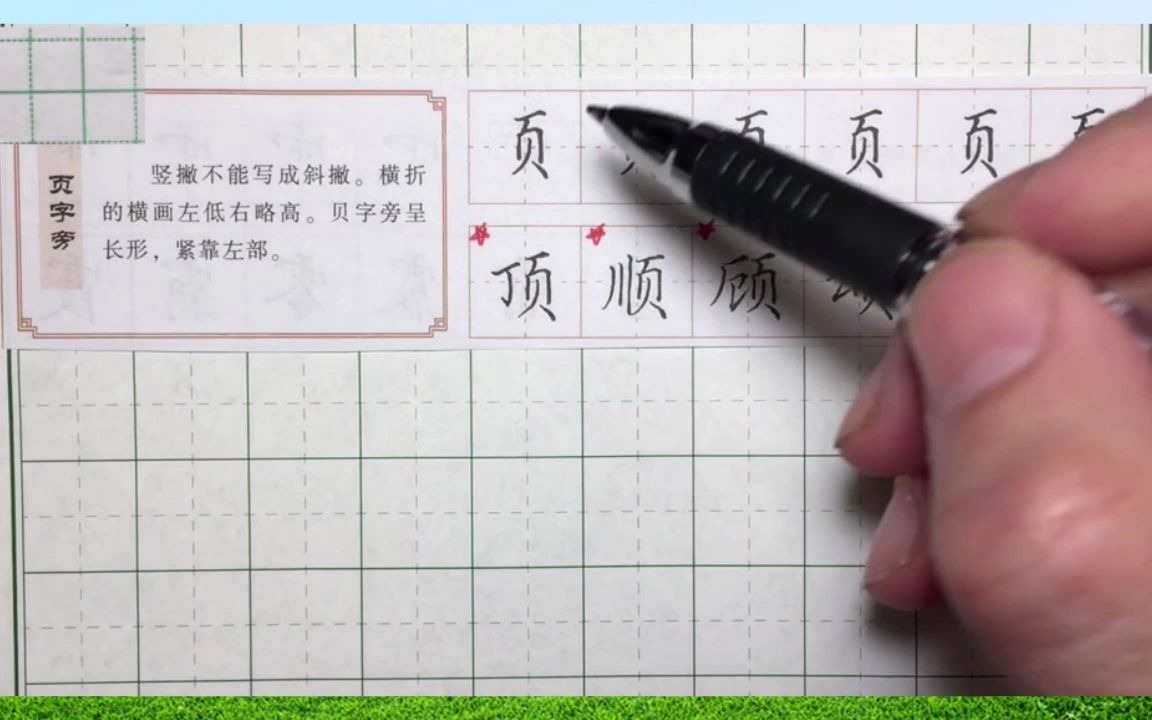 页字旁
竖撇不能写成斜撇。横折
的横画左低右略高。贝字旁呈
长形，紧靠左部。
页 页 页 页
顶 顺 顾